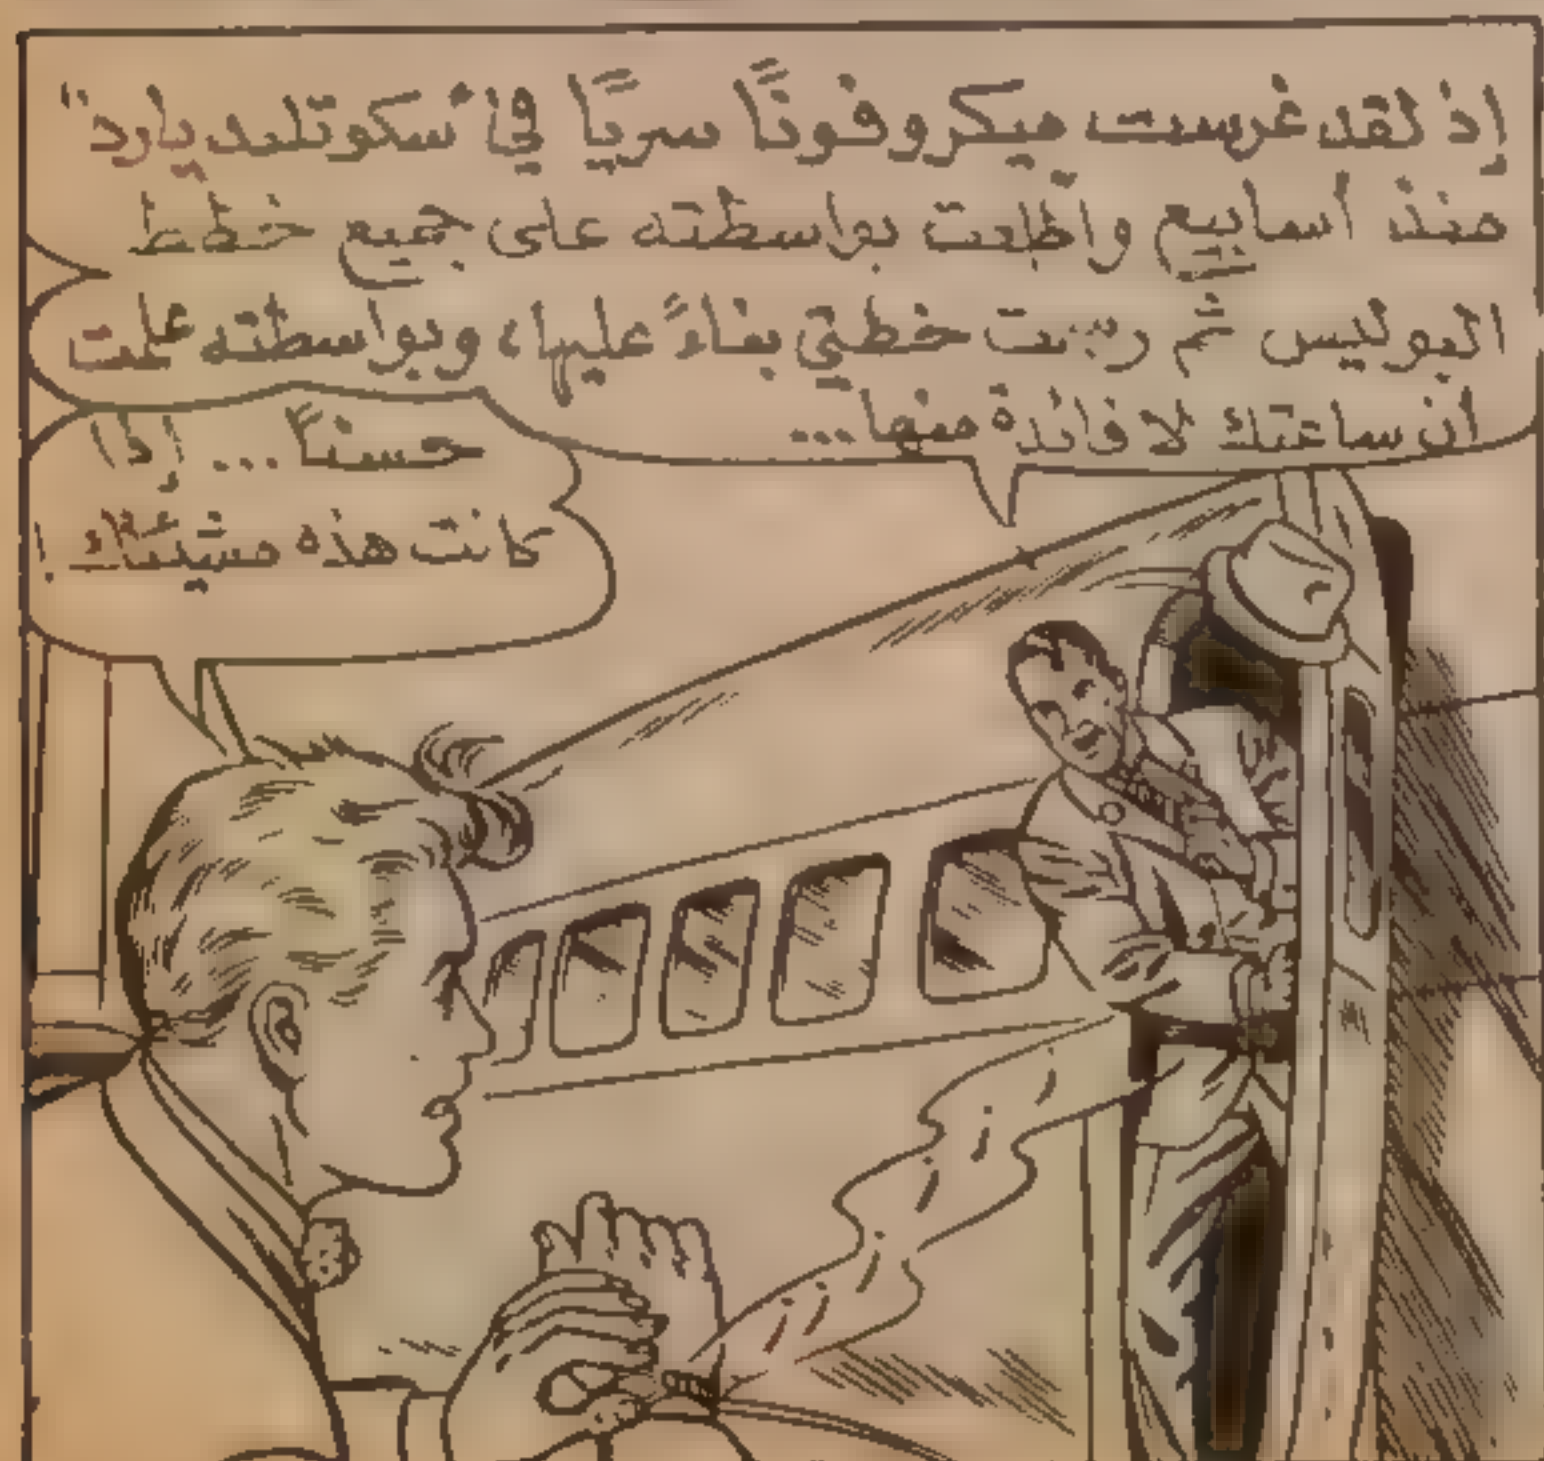 إذ لقد غرست ميكروفونًا سريًا في "سكوتلند يارد"
منذ أسابيع واطلعت بواسطته على جميع خطط
البوليس ثم رسمت خطتي بناءً عليها، وبواسطته علمت
أن ساعتك لا فائدة منها...
حسناً... إذا
كانت هذه مشيئتك!